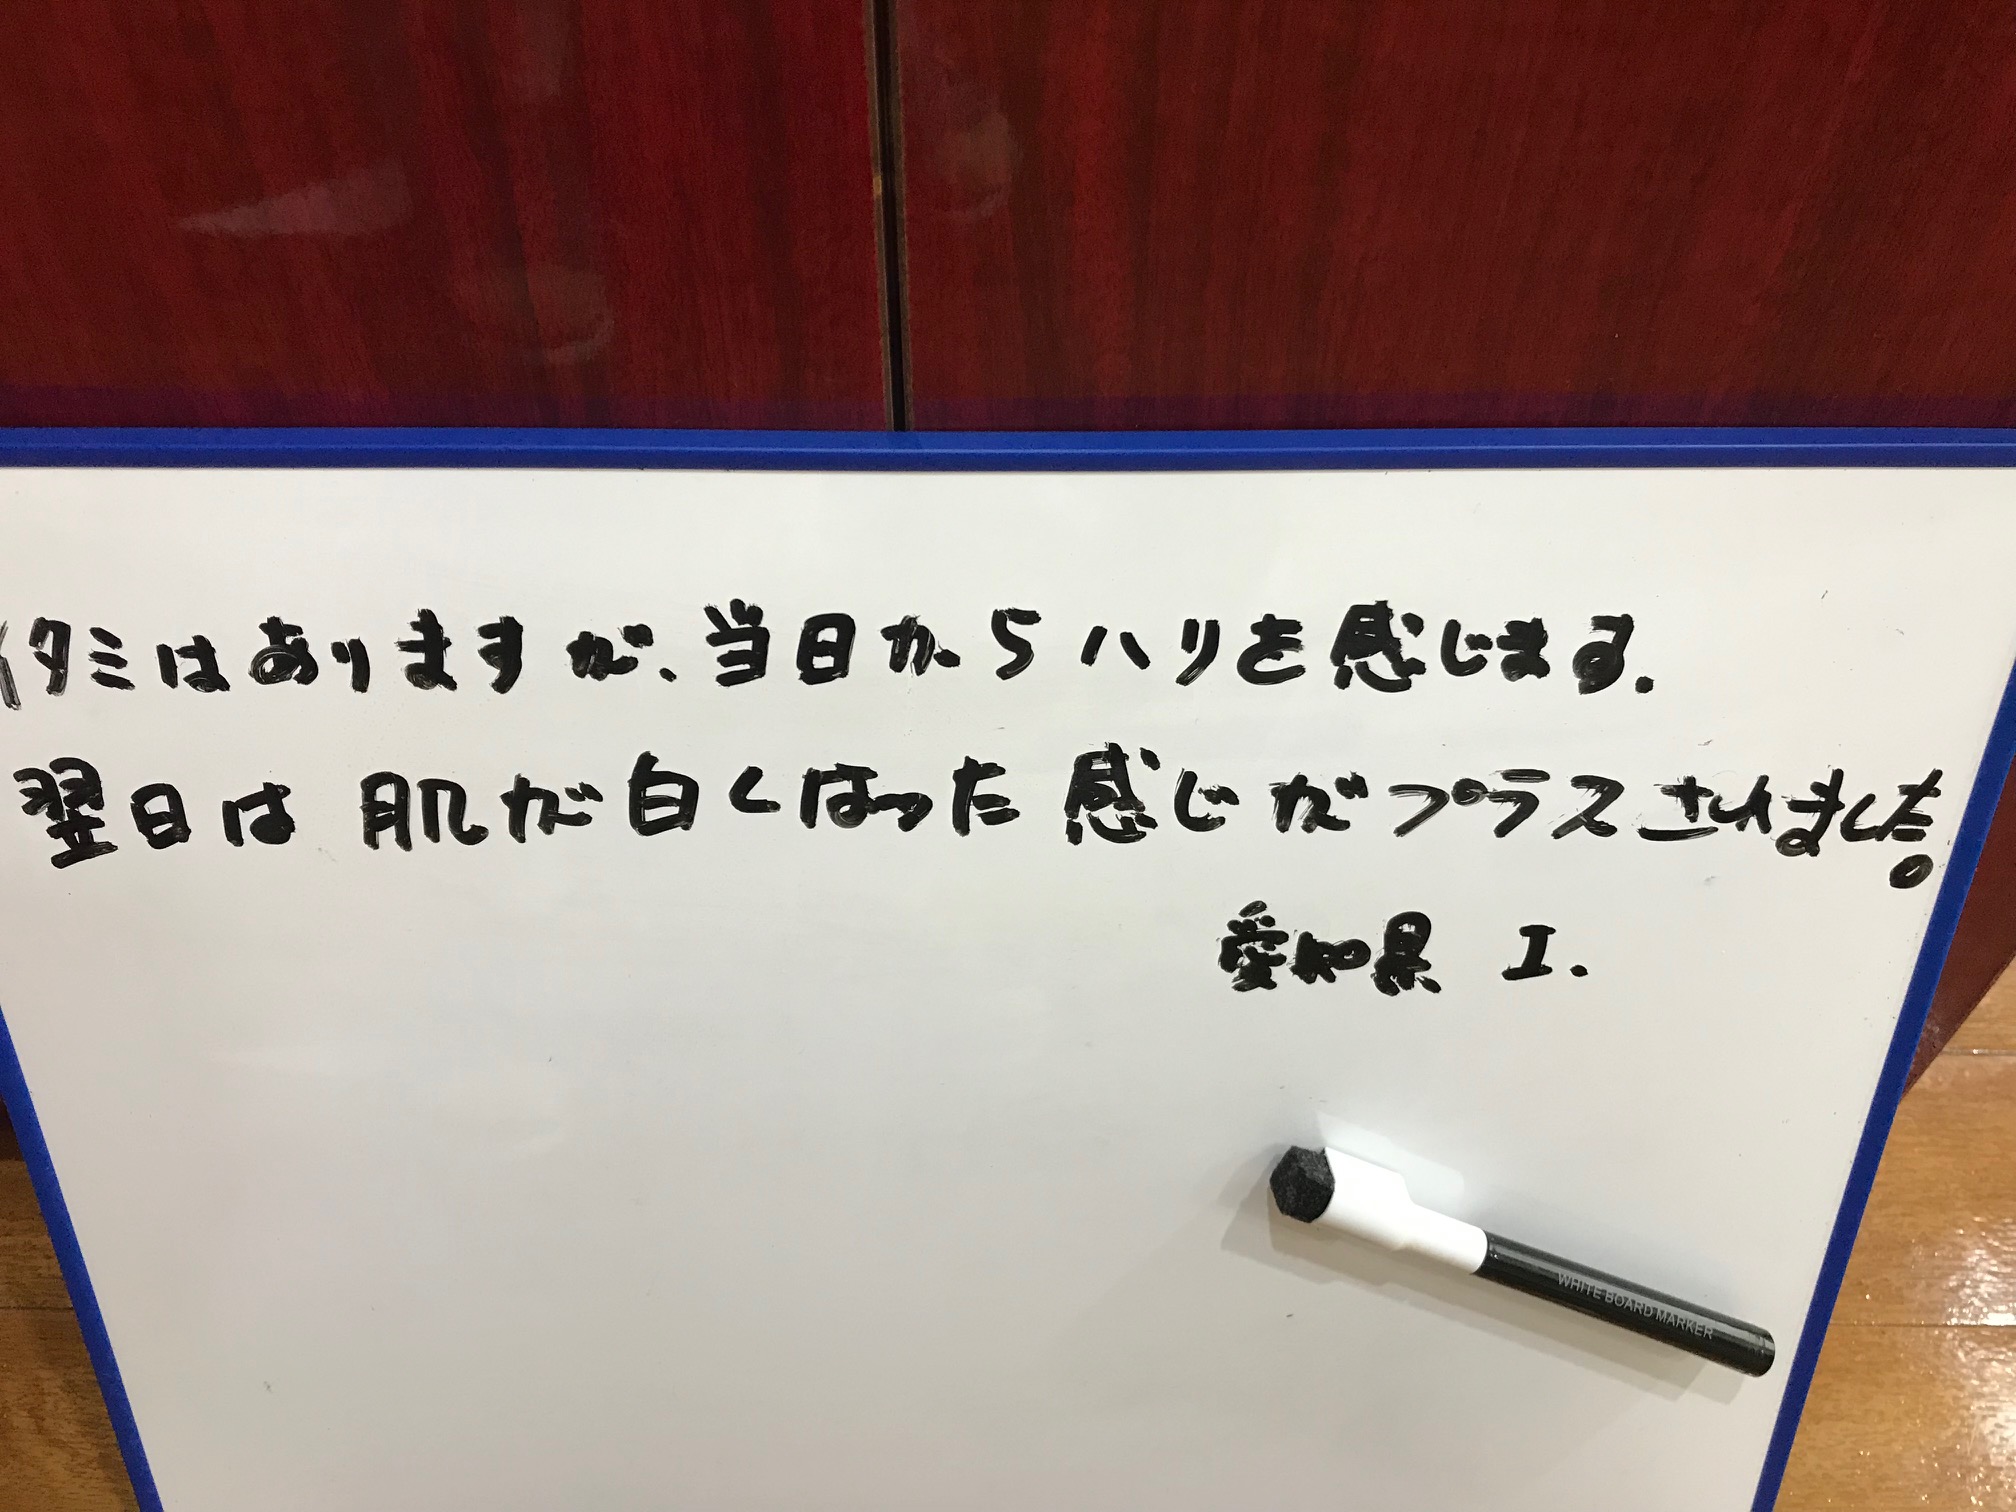 イタミはありますが、当日からハリを感じます.
翌日は肌が白くなった感じがプラスされました。
愛知県 I.
WHITE BOARD MARKER